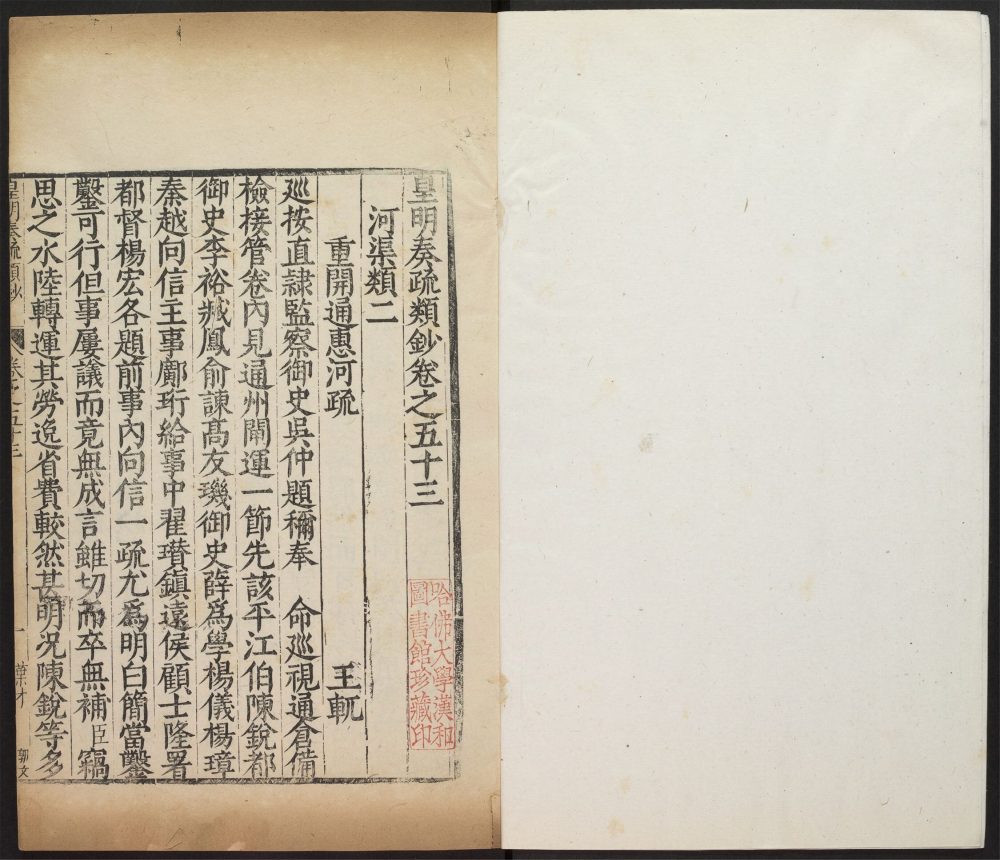 皇明奏疏類鈔卷之五十三
河渠類二
重開通惠河疏 王軏
巡按直隸監察御史吳仲題稱奉 命巡視通倉備
檢接管卷內見通州開運一節先該平江伯陳銳都
御史李裕臧鳳俞諫高友璣御史薛為學楊儀楊璋
秦越向信主事鄺珩給事中翟瓚鎮遠侯顧士隆署
都督楊宏各題前事內向信一疏尤為明白簡當鑿
鑿可行但事屢議而竟無成言雖切而卒無補臣竊
思之水陸轉運其勞逸省費較然甚明况陳銳等多
皇明奏疏類鈔 卷之五十三 一
郭文
哈佛大學漢和
圖書館珍藏印